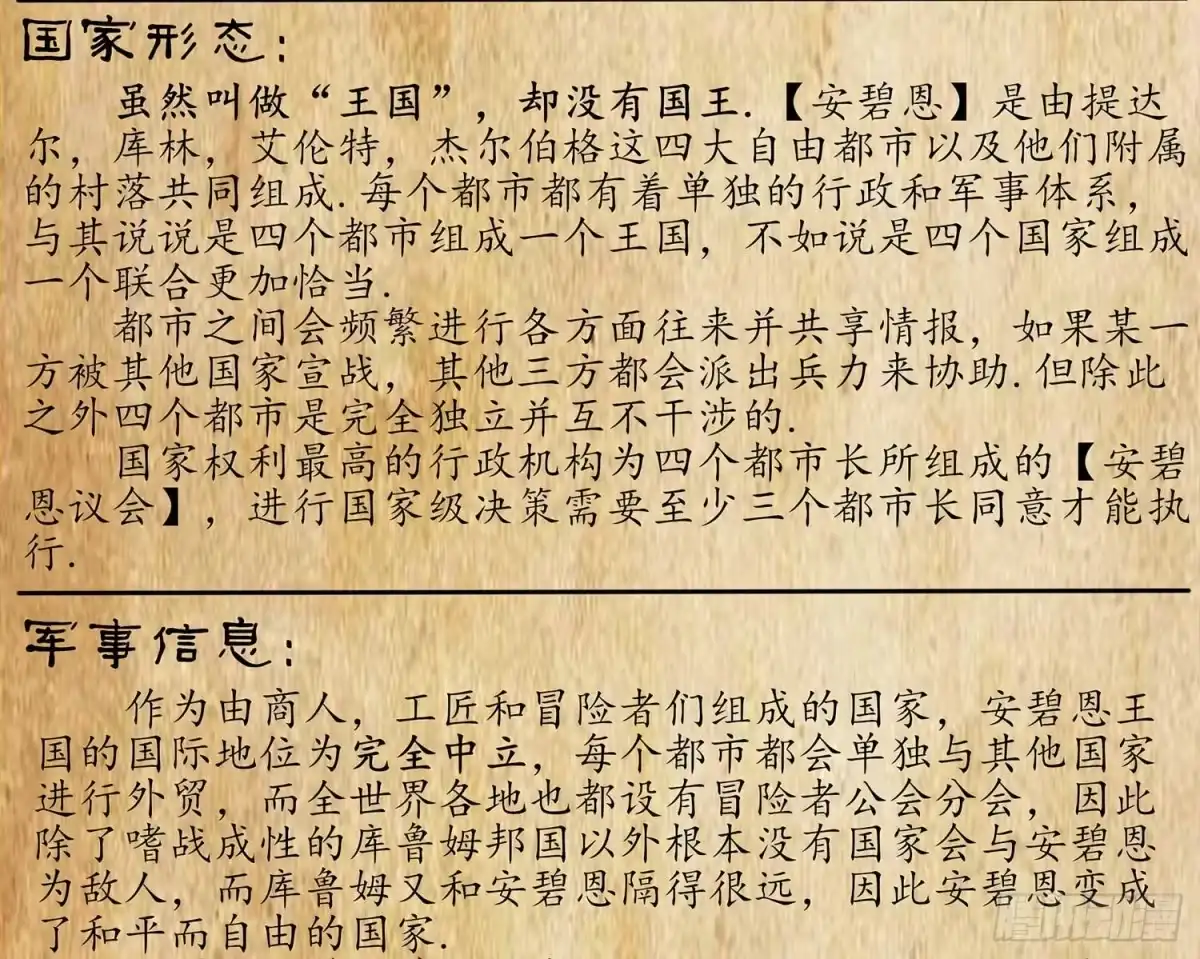 国家形态:
虽然叫做“王国”, 却没有国王.【安碧恩】是由提达
尔, 库林, 艾伦特, 杰尔伯格这四大自由都市以及他们附属
的村落共同组成. 每个都市都有着单独的行政和军事体系,
与其说说是四个都市组成一个王国, 不如说是四个国家组成
一个联合更加恰当.
都市之间会频繁进行各方面往来并共享情报, 如果某一
方被其他国家宣战, 其他三方都会派出兵力来协助. 但除此
之外四个都市是完全独立并互不干涉的.
国家权利最高的行政机构为四个都市长所组成的【安碧
恩议会】, 进行国家级决策需要至少三个都市长同意才能执
行.
军事信息:
作为由商人, 工匠和冒险者们组成的国家, 安碧恩王
国的国际地位为完全中立, 每个都市都会单独与其他国家
进行外贸, 而全世界各地也都设有冒险者公会分会, 因此
除了嗜战成性的库鲁姆邦国以外根本没有国家会与安碧恩
为敌人, 而库鲁姆又和安碧恩隔得很远, 因此安碧恩变成
了和平而自由的国家.